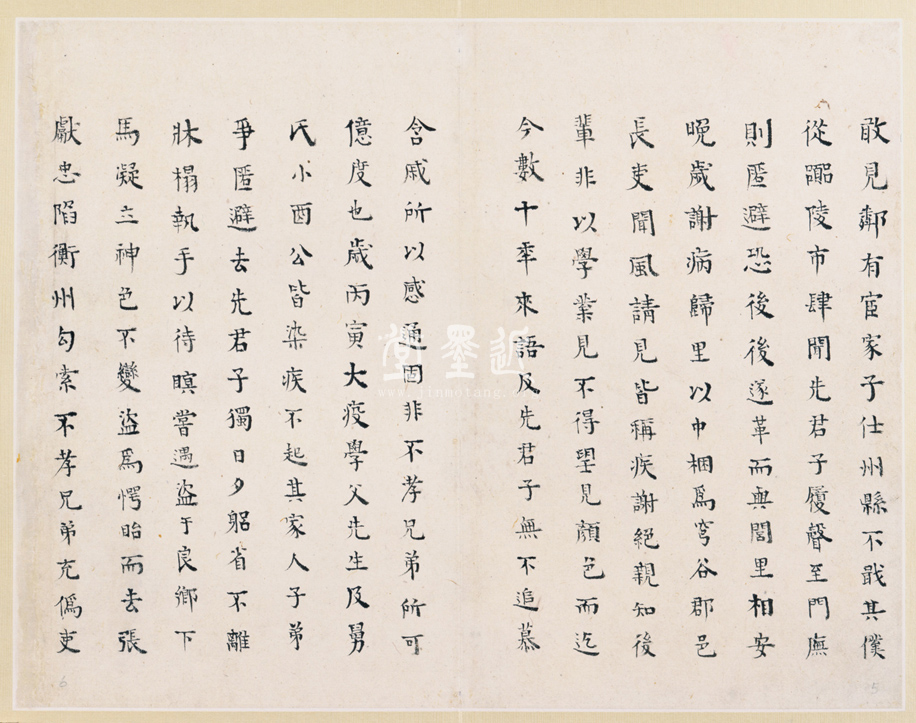 敢見鄰有宦家子仕州縣不戢其僕
從躪陵市肆聞先君子履聲至門廡
則匿避恐後後遂革而與閭里相安
晚歲謝病歸里以巾梱爲穹谷郡邑
長吏聞風請見皆稱疾謝絕親知後
輩非以學業見不得望見顏色而迄
今數十年來語及先君子無不追慕
含戚所以感通固非不孝兄弟所可
億度也歲丙寅大疫學父先生及舅
氏小酉公皆染疾不起其家人子弟
爭匿避去先君子獨日夕躬省不離
牀榻執手以待瞑嘗遇盜于良鄉下
馬凝立神色不變盜爲愕眙而去張
獻忠陷衡州勾索不孝兄弟充僞吏
近墨堂
www.jinmotang.org
5
6